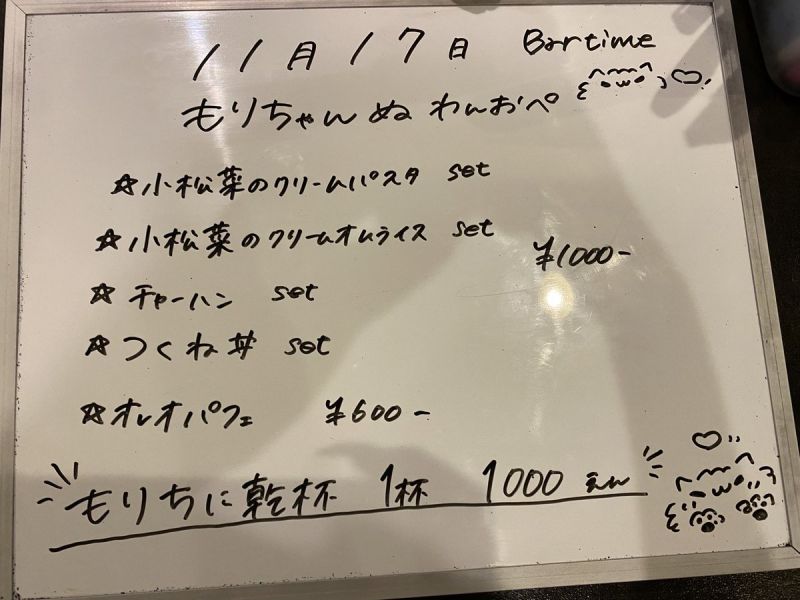 11月17日 Bartime
もりちゃんぬ わんおぺ
☆小松菜のクリームパスタ set
☆小松菜のクリームオムライス set
¥1000-
☆チャーハン set
☆つくね丼 set
☆オレオパフェ ¥600-
もりちに乾杯 1杯 1000えん